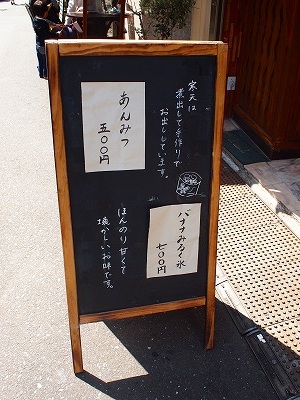 寒天は
煮出して手作りで
お出ししています。
あんみつ
五〇〇円
バナナみるく氷
七〇〇円
ほんのり甘くて
懐かしいお味です。